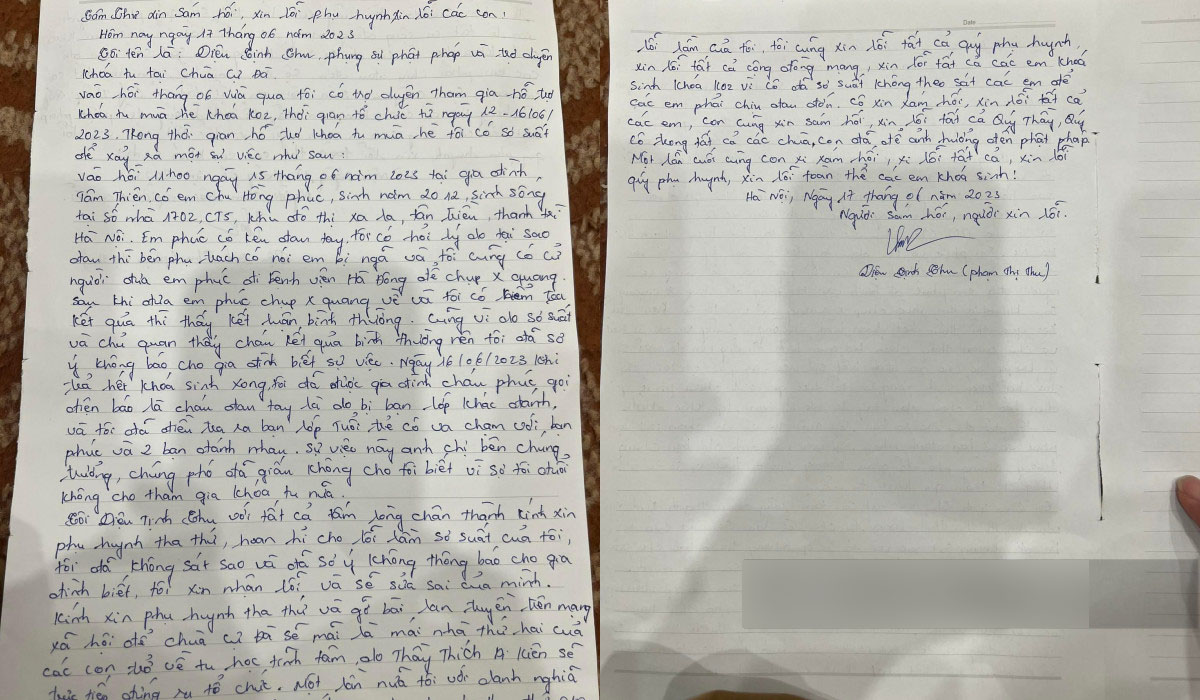 Tâm thư xin sám hối, xin lỗi phụ huynh xin lỗi các con!
Hôm nay ngày 17 tháng 06 năm 2023
Tôi tên là: Diệu Tịnh Thu, phụng sự phật pháp và trợ duyên
khóa tu tại chùa Cự Đà.
vào hồi tháng 06 vừa qua tôi có trợ duyên tham gia hỗ trợ
khóa tu mùa hè khóa K02, thời gian tổ chức từ ngày 12-16/06/
2023. Trong thời gian hỗ trợ khóa tu mùa hè tôi có sơ suất
để xảy ra một sự việc như sau:
vào hồi 11h00 ngày 15 tháng 06 năm 2023 tại gia đình,
Tâm Thiên, có em Chu Hồng phúc, sinh năm 2012, sinh sống
tại số nhà 1702, CT5, khu đô thị xa la, tân triều, thanh trì
Hà Nội. Em phúc có kêu đau tay, tôi có hỏi lý do tại sao
đau thì bên phụ trách có nói em bị ngã và tôi cũng có cử
người đưa em phúc đi bệnh viện Hà Đông để chụp X quang.
sau khi đưa em phúc chụp X quang về và tôi có kiểm tra
kết quả thì thấy kết luận bình thường. Cũng vì do sơ suất
và chủ quan thấy cháu kết quả bình thường nên tôi đã sơ
ý không báo cho gia đình biết sự việc. Ngày 16/06/2023 khi
trả hết khóa sinh xong, tôi đã được gia đình cháu phúc gọi
điện báo là cháu đau tay là do bị bạn lớp khác đánh,
và tôi đã điều tra ra bạn lớp Tuổi trẻ có va chạm với bạn
phúc và 2 bạn đánh nhau. Sự việc này anh chị bên chúng
trưởng, chúng phó đã giấu không cho tôi biết vì sợ tôi đuổi
không cho tham gia khóa tu nữa.
Tôi Diệu Tịnh Thu với tất cả tấm lòng chân thành kính xin
phụ huynh tha thứ, hoan hỉ cho lỗi lầm sơ suất của tôi,
tôi đã không sát sao và đã sơ ý không thông báo cho gia
đình biết, tôi xin nhận lỗi và sẽ sửa sai của mình.
Kính xin phụ huynh tha thứ và gỡ bài lan truyền trên mạng
xã hội để chùa cự đà sẽ mãi là mái nhà thứ hai của
các con trở về tu học tịnh tâm, do Thầy Thích Kiên sẽ
trực tiếp đứng ra tổ chức. Một lần nữa tôi với danh nghĩa
Date
lỗi lầm của tôi, tôi cũng xin lỗi tất cả quý phụ huynh,
xin lỗi tất cả cộng đồng mạng, xin lỗi tất cả các em khóa
sinh khóa K02 vì cô đã sơ suất không theo sát các em để
các em phải chịu đau đớn. Cô xin xám hối, xin lỗi tất cả
các em, con cũng xin sám hối, xin lỗi tất cả Quý Thầy, Quý
Cô trong tất cả các chùa, con đã để ảnh hưởng đến phật pháp.
Một lần cuối cùng con xi xám hối, xi lỗi tất cả, xin lỗi
quý phụ huynh, xin lỗi toàn thể các em khóa sinh!
Hà Nội, Ngày 17 tháng 06 năm 2023
Người sám hối, người xin lỗi.
Diệu Tịnh Thu (phạm Thị Thu)